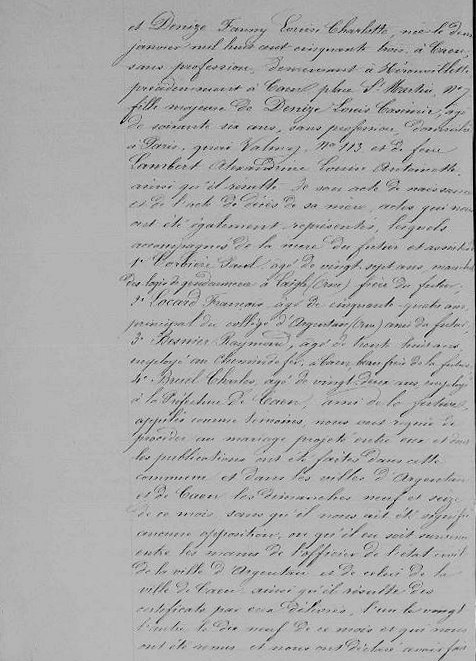 et Denize Fanny Louise Charlotte, née le deux
janvier mil huit cent cinquante trois, à Caen,
sans profession, demeurant à Hérouvillette
précédemment à Caen place St Martin, No 7
fille majeure de Denize Louis Casimir, âgé
de soixante six ans, sans profession, domicilié
à Paris, quai Valmy, No 113 et de feue
Lambert Alexandrine Louise Antoinette
ainsi qu'il résulte de son acte de naissance
et de l'acte de décès de sa mère, actes qui nous
ont été également représentés, lesquels
accompagnés de la mère du futur et assistés
1o Corbière Paul, âgé de vingt sept ans, maréchal
des logis de gendarmerie à Laigle (Orne) frère du futur
2o Locard François, âgé de cinquante quatre ans
principal du collège d'Argentan (Orne) ami du futur
3o Besnier Raymond, âgé de trente huit ans
employé au chemin de fer, à Caen, beau frère de la future
4o Bruel Charles âgé de vingt deux ans, employé
à la Préfecture de Caen, ami de la future
appelés comme témoins, nous ont requis de
procéder au mariage projeté entre eux et dont
les publications ont été faites dans cette
commune et dans les villes d'Argentan
et de Caen les dimanches neuf et seize
de ce mois, sans qu'il nous ait été signifié
aucune opposition, ou qu'il en soit survenu
entre les mains de l'officier de l'état civil
de la ville d'Argentan et de celui de la
ville de Caen ainsi qu'il résulte des
certificats par eux délivrés, l'un le vingt
l'autre le dix neuf de ce mois et qui nous
ont été remis et nous ont déclaré avoir fait